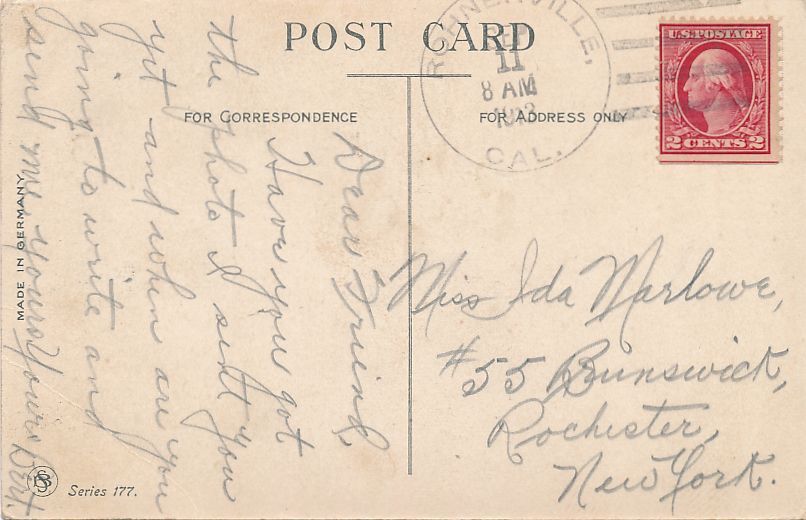 POST CARD
FOR CORRESPONDENCE
FOR ADDRESS ONLY
ROHNERVILLE,
11
8 AM
CAL.
U.S. POSTAGE
2 CENTS 2
Dear Friend,
Have you got
the photo I sent you
yet and when are you
going to write and
send me yours Yours Dart.
Miss Ida Marlowe,
#55 Bunswick,
Rochester,
New York.
MADE IN GERMANY
Series 177.